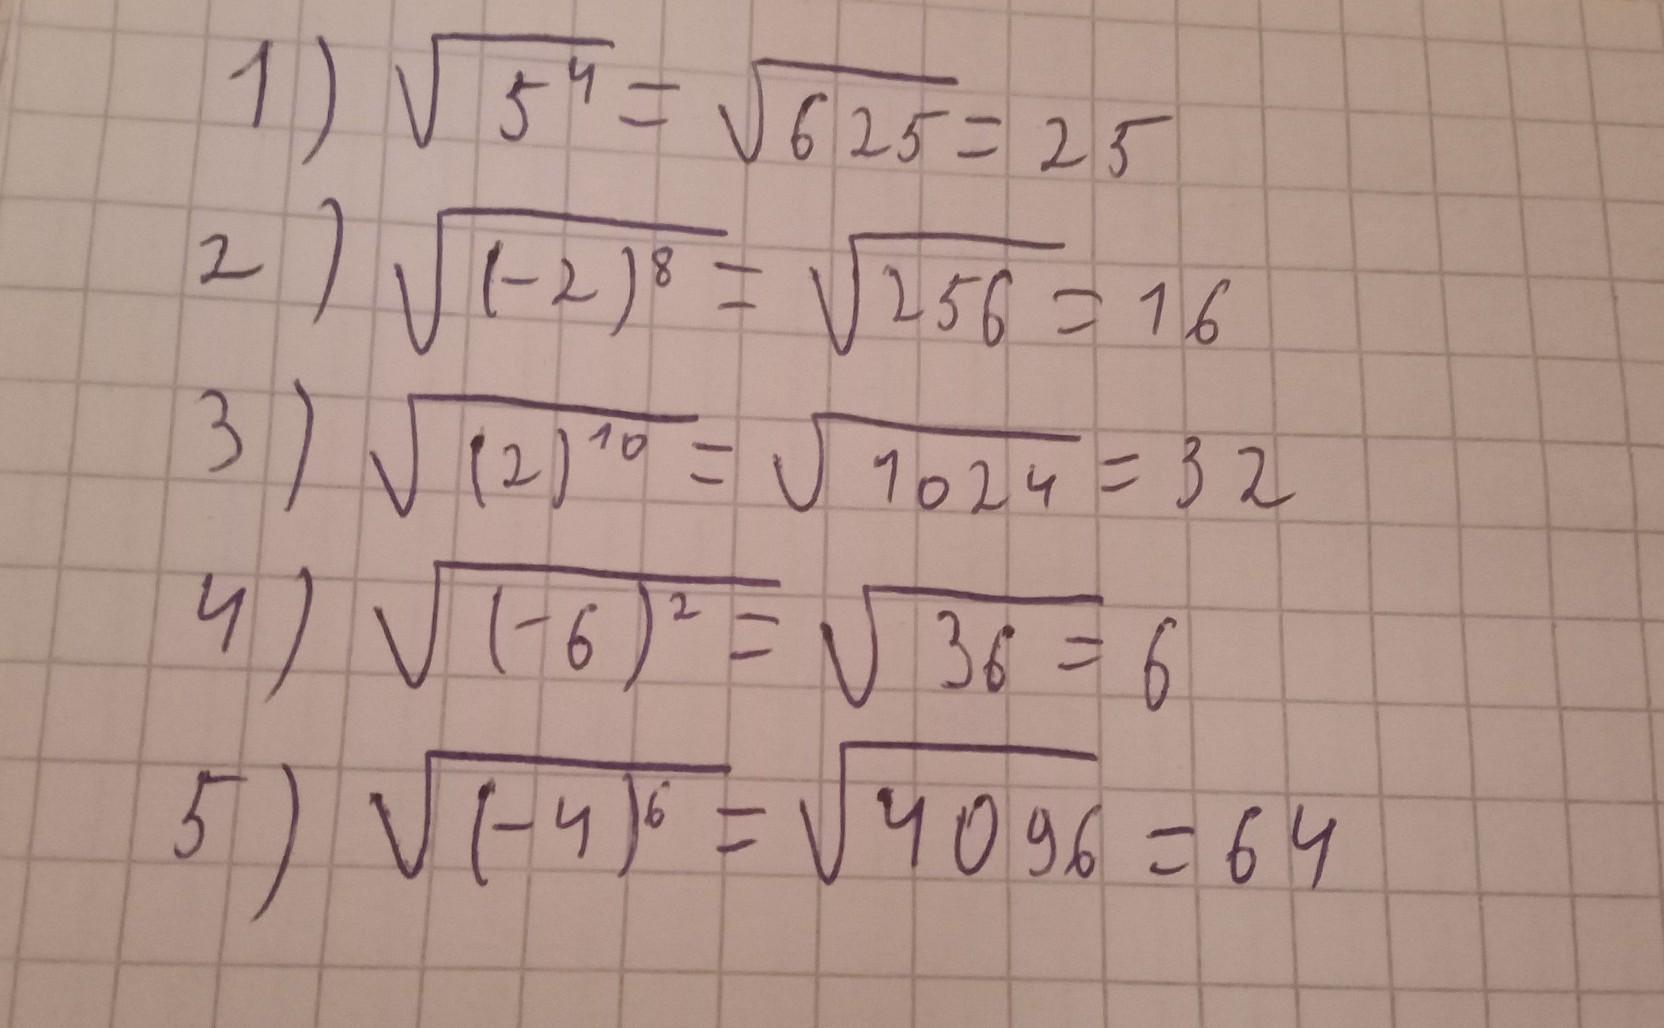 1) √5⁴ = √625 = 25
2) √(-2)⁸ = √256 = 16
3) √(2)¹⁰ = √1024 = 32
4) √(-6)² = √36 = 6
5) √(-4)⁶ = √4096 = 64